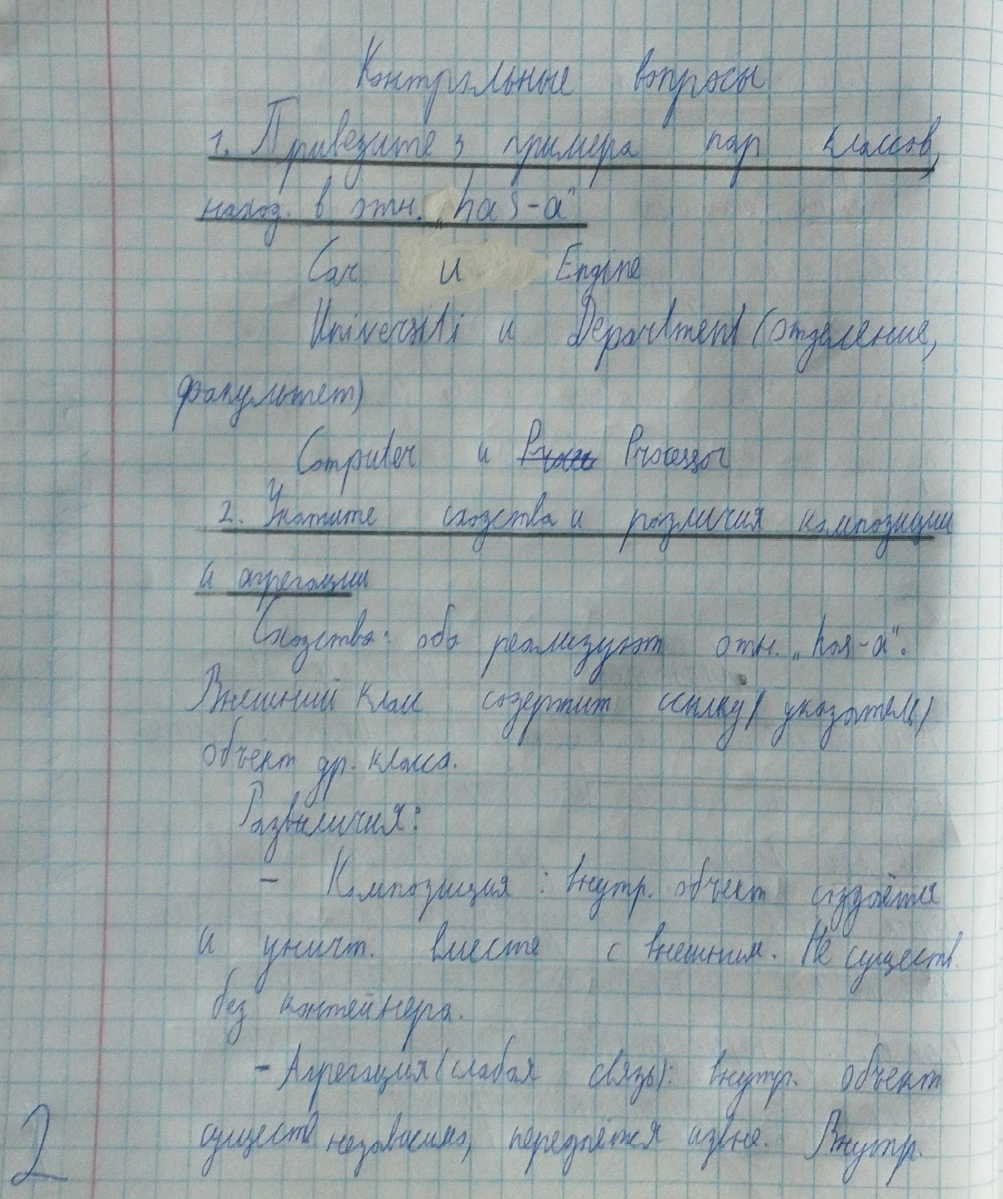 Контрольные вопросы
1. Приведите 3 примера пар классов,
наход. в отн. „has-a"
Car и Engine
Universiti и Department (отделение,
факультет)
Computer и Processor
2. Укажите сходства и различия композиции
и агрегации
Сходства: оба реализуют отн. „has-a".
Внешний класс содержит ссылку/указатель/
объект др. класса.
Развличия:
- Композиция: внутр. объект создаётся
и уничт. вместе с внешним. Не существ.
без контейнера.
- Агрегация (слабая связь): внутр. объект
существ независимо, передаётся извне. Внутр.
2